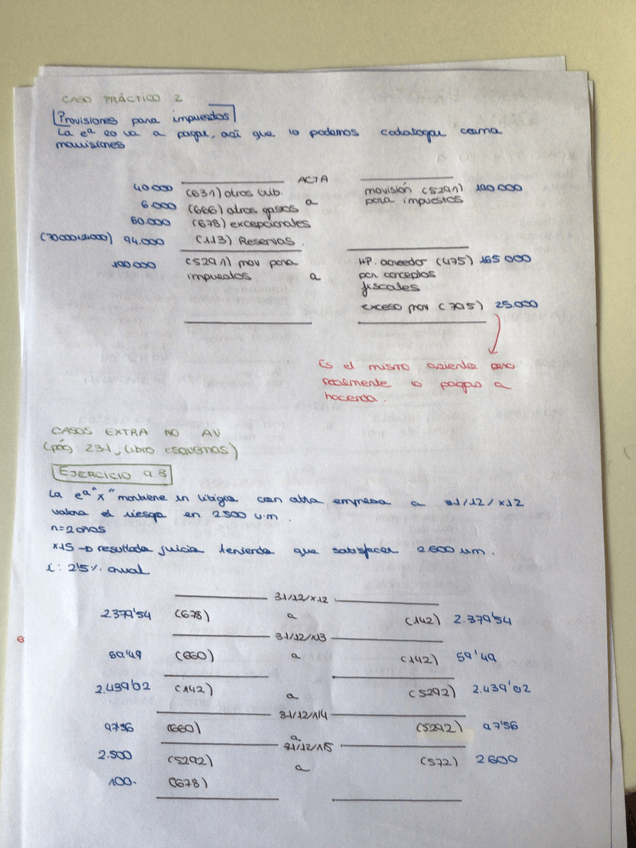 CASO PRÁCTICO 2
Provisiones para impuestos
La eª es va a pagar, así que lo podemos catalogar como
provisiones
ACTA
40.000 (631) otros trib. a provisión (5291) 100.000
6.000 (666) otros gastos para impuestos
60.000 (678) excepcionales
94.000 (113) Reservas
100.000 (5291) prov para a HP. acreedor (475) 165 000
impuestos por conceptos
fiscales
exceso prov (795) 25.000
Es el mismo asiento pero
realmente lo pagas a
hacenda.
CASOS EXTRA NO AV
(pág 231, libro esquemas)
EJERCICIO 9.3
La eª "x" mantiene un litigio con otra empresa a 31/12/x12
valora el riesgo en 2500 u.m.
n=2 años
x15 → resultado juicio teniendo que satisfacer 2.600 um.
i: 2'5% anual
31/12/x12
2.379'54 (678) a (142) 2.379'54
31/12/x13
59'49 (660) a (142) 59'49
2.439'02 (142) a (5292) 2.439'02
31/12/14
(660) a (5292)
31/12/15
2.500 (5292) a (572) 2600
100. (678)